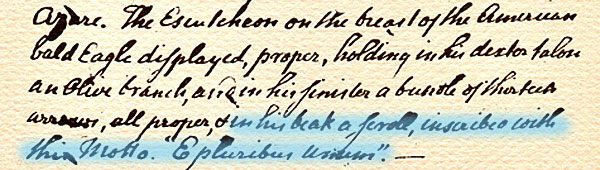 Azure. The Escutcheon on the breast of the American
bald Eagle displayed, proper, holding in his dexter talon
an Olive branch, and in his sinister a bundle of thirteen
arrows, all proper, & in his beak a scroll, inscribed with
this Motto. "E pluribus unum". —